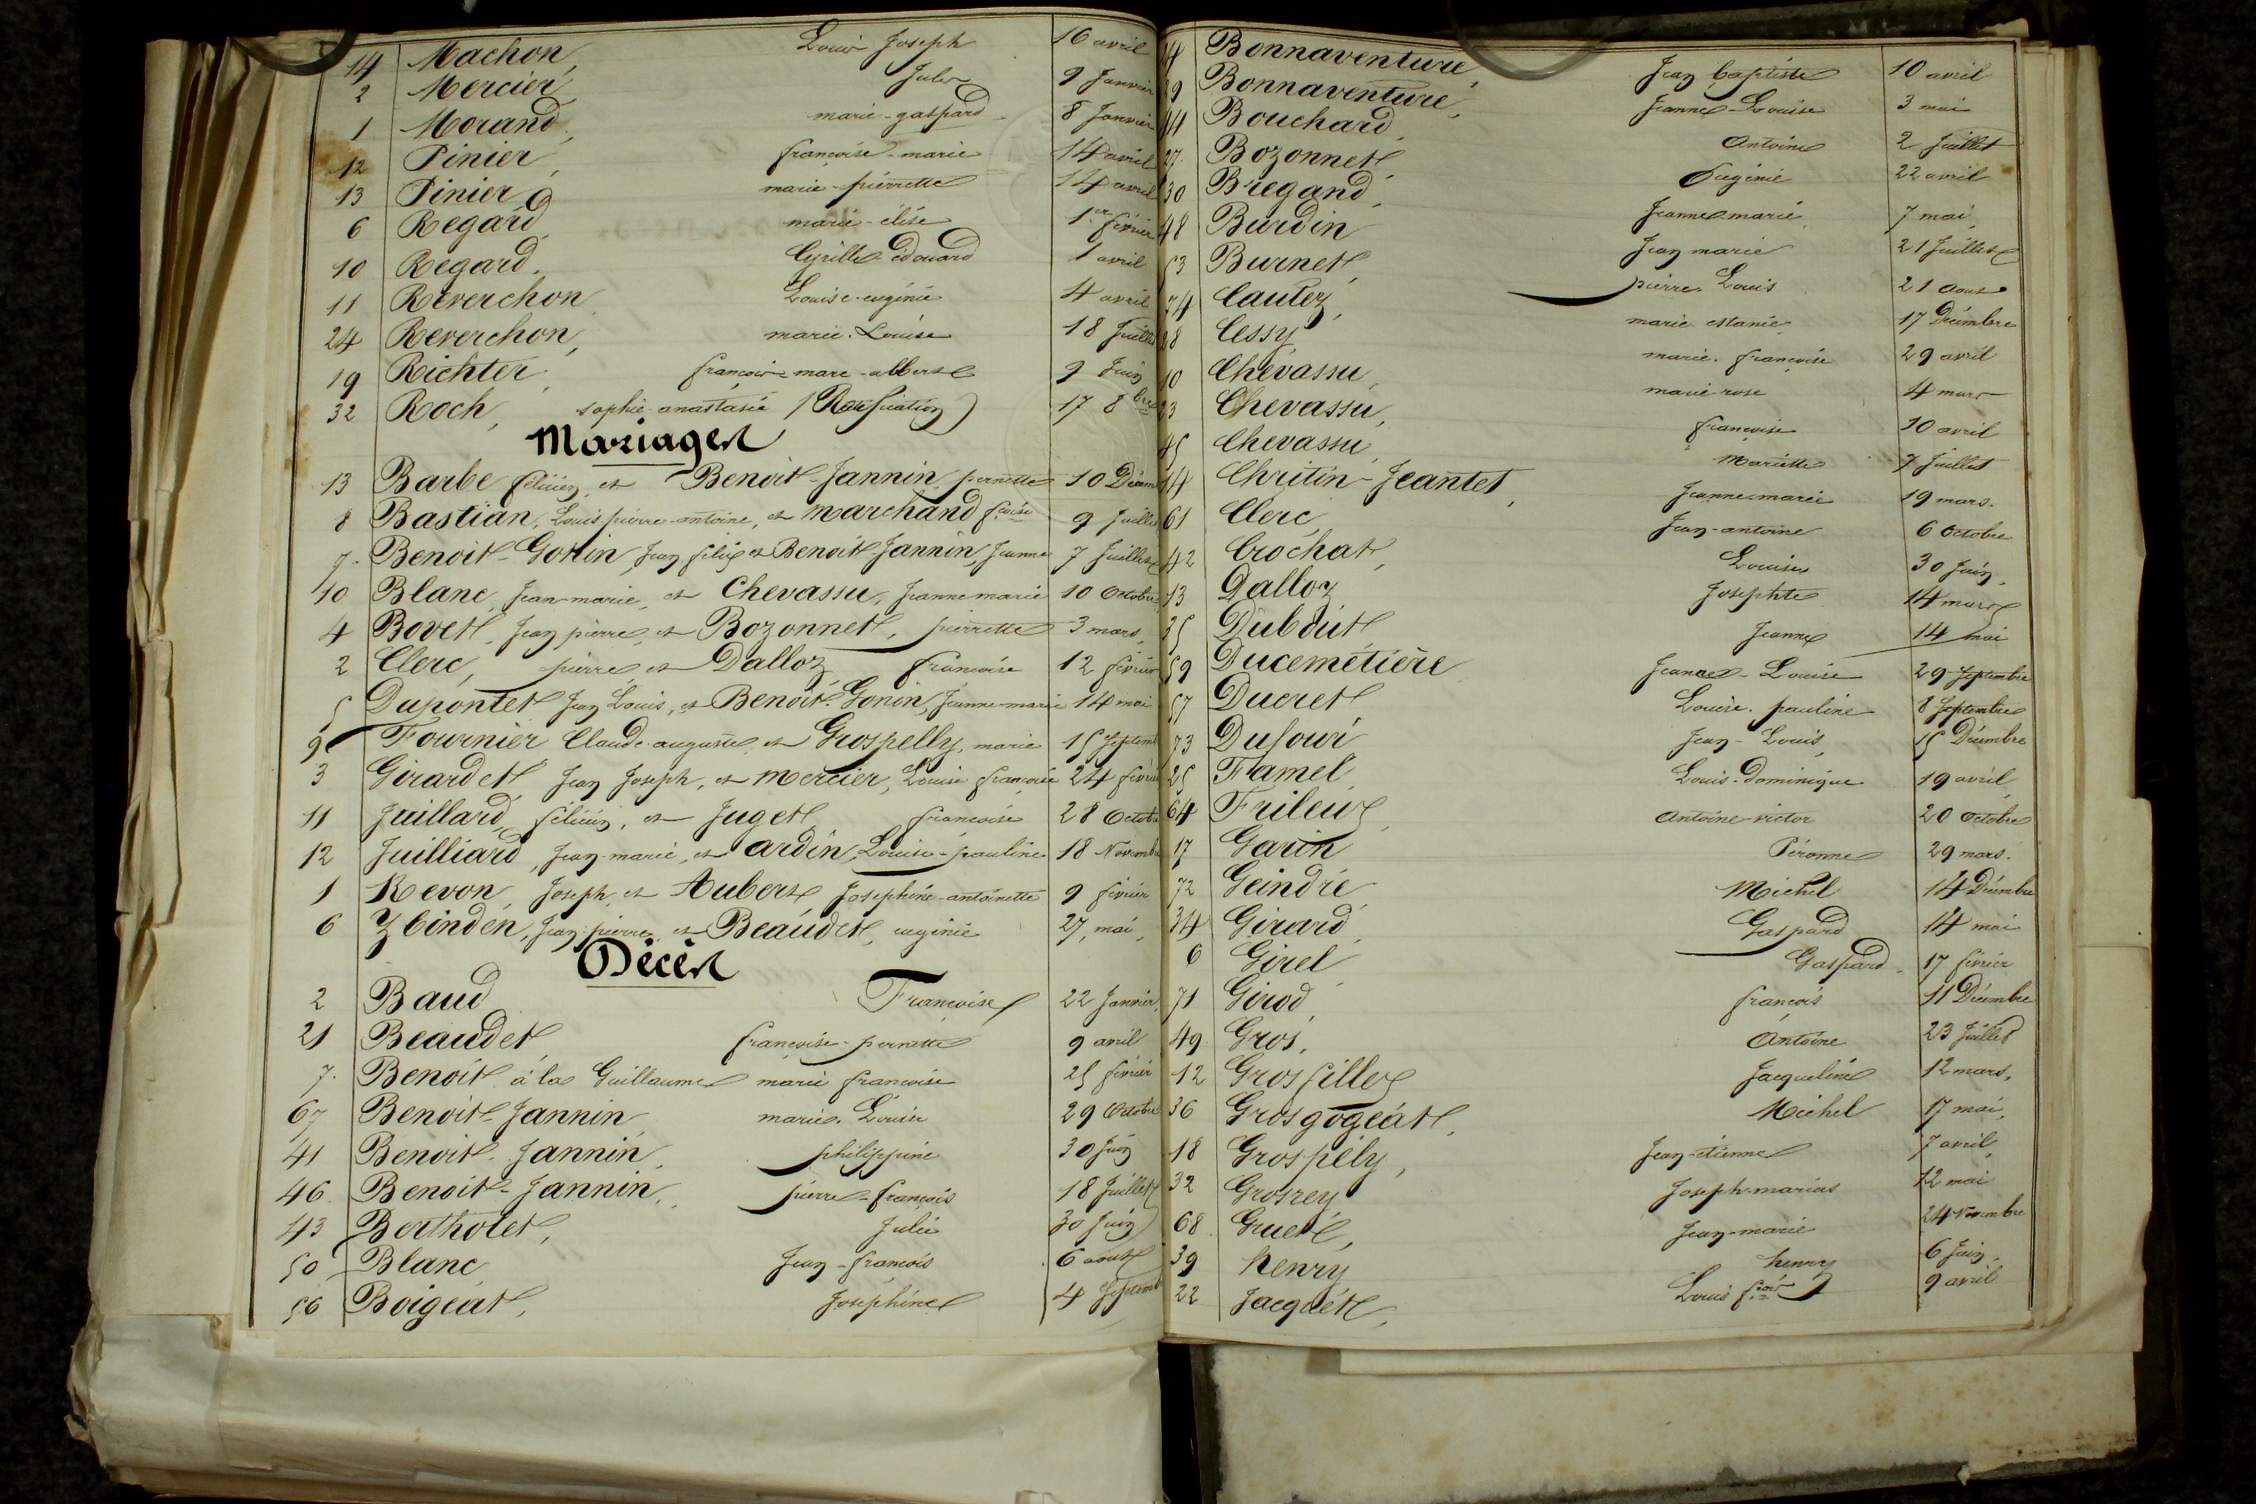 14 Machon, Louis Joseph 16 avril
2 Mercier, Jules 9 Janvier
1 Morand, marie-gaspard 8 Janvier
12 Pinier, françoise-marie 14 avril
13 Pinier, marie-pierrette 14 avril
6 Regard, marie-élise 1er février
10 Regard, Cyrille édouard 1 avril
11 Reverchon, Louise-eugénie 4 avril
24 Reverchon, marie-Louise 18 Juillet
19 Richter, françois-marc-albert 9 Juin
32 Roch, sophie anastasie (Ratification) 17 8bre
Mariages
13 Barbe félicien et Benoit-Jannin pernette 10 Décem
8 Bastian, Louis pierre-antoine, et Marchand fçoise 9 Juillet
7 Benoit-Gonin, Jean félix et Benoit Jannin, Jeanne 7 Juillet
10 Blanc, Jean-marie, et Chevassu, Jeanne marie 10 Octobre
4 Bovet, Jean pierre et Bozonnet, pierrette 3 mars
2 Clerc, pierre et Dalloz françoise 12 février
5 Dupontet Jean Louis, et Benoit-Gonin, Jeanne-marie 14 mai
9 Fournier Claude-auguste et Grospelly, marie 15 Septemb
3 Girardet, Jean Joseph, et Mercier, Louise françoise 24 février
11 Juillard, félicien, et Juget françoise 28 Octob
12 Juilliard, Jean-marie, et Ardin, Louise-pauline 18 Novemb
1 Revon, Joseph, et Aubert Josephine-antoinette 9 février
6 Zbinden, Jean-pierre, et Beaudet, eugénie 27 mai
Décès
2 Baud Françoise 22 Janvier
21 Beaudet françoise-pernette 9 avril
7 Benoit à la Guillaume marie françoise 25 février
67 Benoit-Jannin marie-Louise 29 Octobre
41 Benoit-Jannin, philippine 30 Juin
46 Benoit-Jannin, pierre-françois 18 Juillet
43 Bertholet, Julie 30 Juin
50 Blanc Jean-françois 6 aout
56 Boigeat, Joséphine 4 Septemb
Bonnaventure, Jean baptiste 10 avril
Bonnaventure, Jeanne-Louise 3 mai
44 Bouchard, Antoine 2 Juillet
27 Bozonnet, Eugénie 22 avril
30 Bregand, Jeanne-marie 7 mai
48 Burdin Jean marie 21 Juillet
53 Burnet, pierre Louis 21 Aout
74 Cautez, marie estanie 17 Décembre
28 Cessy marie-françoise 29 avril
10 Chevassu, marie-rose 4 mars
23 Chevassu, françoise 10 avril
45 Chevassu, Mariette 7 Juillet
14 Chritin-Jeantet, Jeanne-marie 19 mars
61 Clerc, Jean-antoine 6 Octobre
42 Crochat, Louise 30 Juin
13 Dalloz Josephte 14 mars
35 Dubout Jeanne 14 mai
59 Ducemétière Jeanne-Louise 29 Septembre
57 Ducret Louise-pauline 8 Septembre
73 Dufour Jean-Louis 15 Décembre
25 Flamel Louis-Dominique 19 avril
64 Frileux, Antoine-victor 20 Octobre
17 Garin Péronne 29 mars
72 Geindre Michel 14 Décembre
34 Girard, Gaspard 14 mai
6 Girel Gaspard 17 février
71 Girod, françois 11 Décembre
49 Gros, Antoine 23 Juillet
12 Grosfillex Jacqueline 12 mars
36 Grosgogeat, Michel 17 mai
18 Grospély, Jean-étienne 7 avril
32 Grosrey Joseph-marius 12 mai
68 Gruet, Jean-marie 24 Novembre
39 henry henry 6 Juin
22 Jacquet, Louis fçois 9 avril